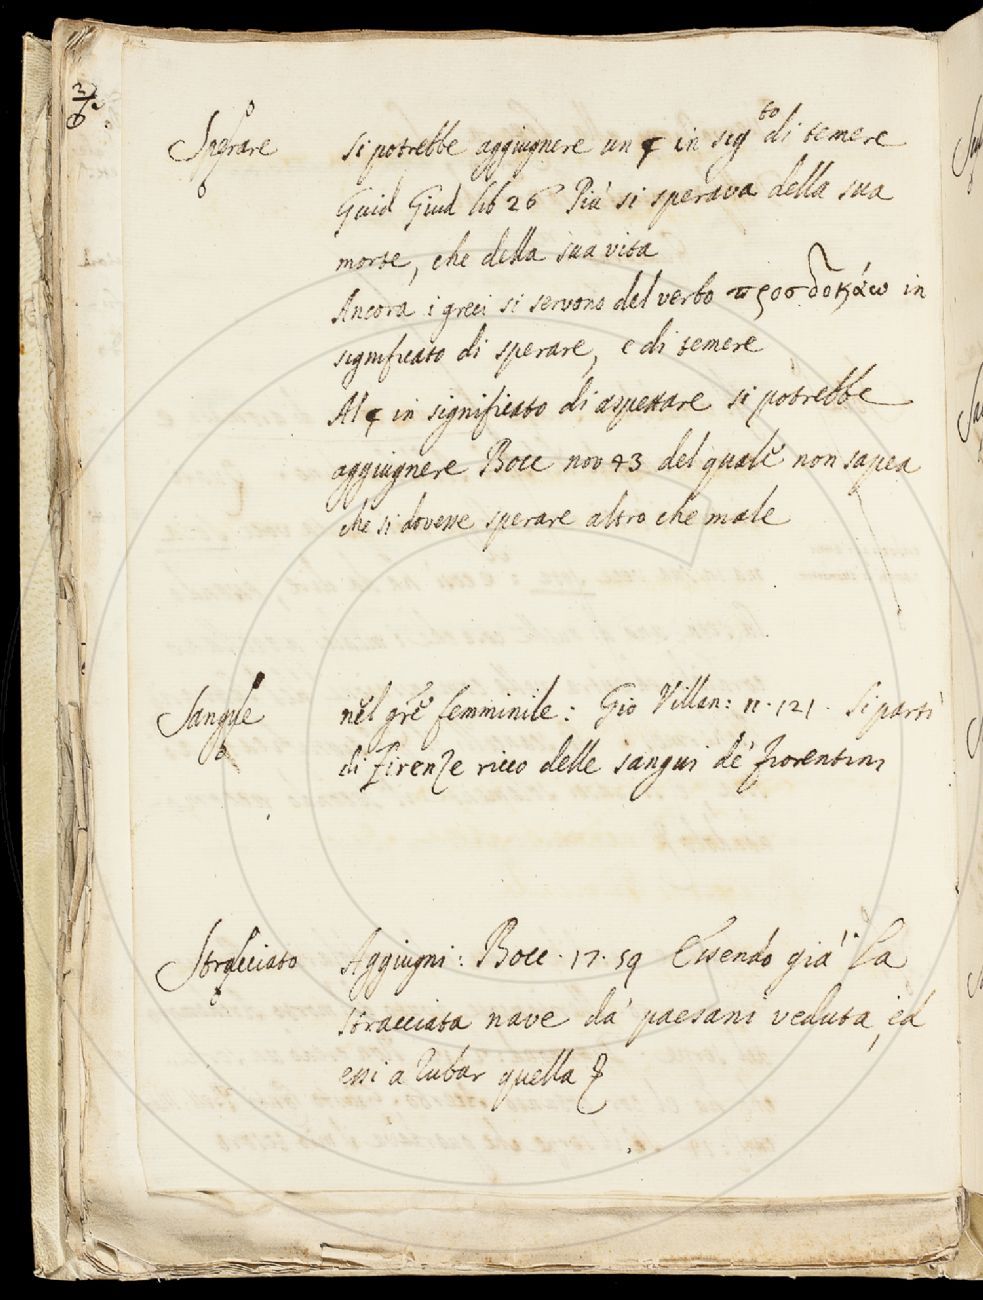 Sperare si potrebbe aggiugnere un § in sig.to di temere
Guid Giud lib 26 Più si sperava della sua
morte, che della sua vita
Ancora i greci si servono del verbo προσδοκάω in
significato di sperare, e di temere
Al § in significato di aspettare si potrebbe
aggiugnere Bocc nov 43 del quale non sapea
che si dovesse sperare altro che male
Sangue nel gñe femminile: Gio Villan: 11. 121. Si partì
di Firenze ricco delle sangui de' fiorentini
Stracciato Aggiugni: Bocc. 17. 59 Essendo già la
stracciata nave da' paesani veduta, ed
essi a rubar quella